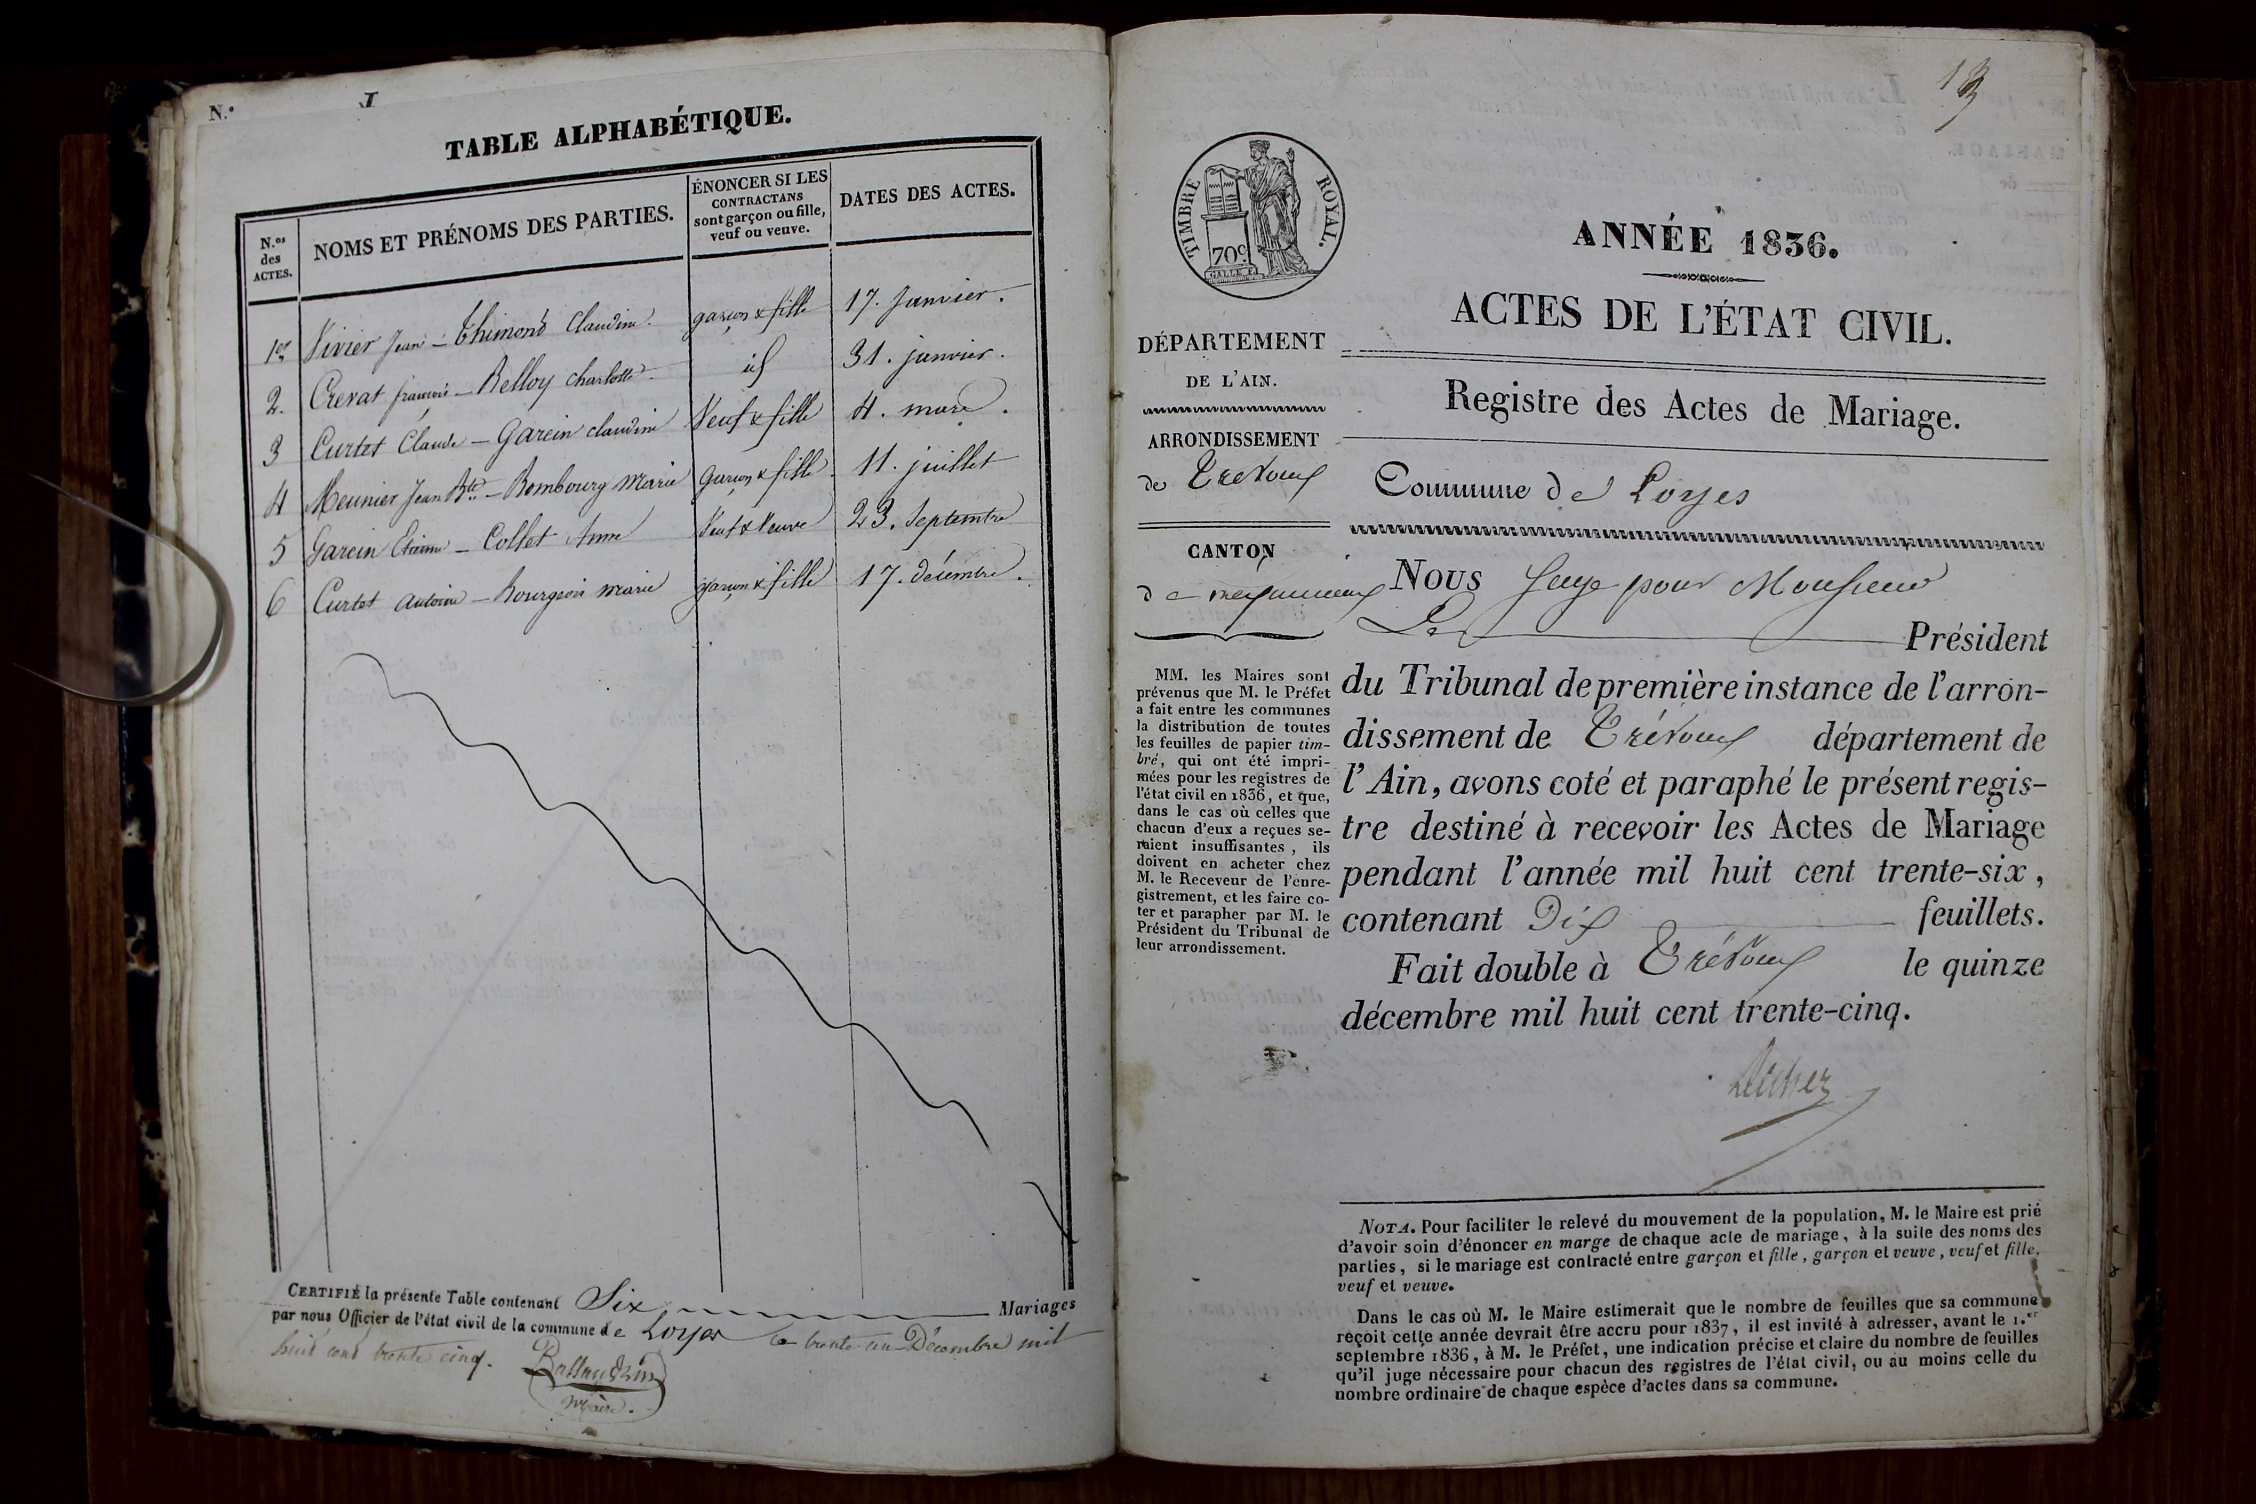 N.º I
TABLE ALPHABÉTIQUE.
N.os des ACTES.
NOMS ET PRÉNOMS DES PARTIES.
ÉNONCER SI LES CONTRACTANS sont garçon ou fille, veuf ou veuve.
DATES DES ACTES.
1er Vivier Jean - Thimond Claudine. garçon & fille 17. Janvier.
2. Crevat françois - Belloy charlotte. id 31. janvier.
3 Curtet Claude - Garcin claudine Veuf & fille 4. mars.
4 Meunier Jean Bte - Bombourg Marie garçon & fille 11. juillet
5 Garcin Etienne - Collet Anne Veuf & Veuve 23. Septembre
6 Curtet antoine - Bourgeois marie garçon & fille 17. décembre.
CERTIFIÉ la présente Table contenant Six Mariages
par nous Officier de l'état civil de la commune de Loyes le trente un Décembre mil
huit cent trente cinq.
Maire.
13
TIMBRE ROYAL.
70c.
GALLE F.
DÉPARTEMENT
DE L'AIN.
ARRONDISSEMENT
de Trévoux
CANTON
de meximieux
MM. les Maires sont
prévenus que M. le Préfet
a fait entre les communes
la distribution de toutes
les feuilles de papier tim-
bré, qui ont été impri-
mées pour les registres de
l'état civil en 1836, et que,
dans le cas où celles que
chacun d'eux a reçues se-
raient insuffisantes, ils
doivent en acheter chez
M. le Receveur de l'enre-
gistrement, et les faire co-
ter et parapher par M. le
Président du Tribunal de
leur arrondissement.
ANNÉE 1836.
ACTES DE L'ÉTAT CIVIL.
Registre des Actes de Mariage.
Commune de Loyes
Nous Juge pour Monsieur
Le Président
du Tribunal de première instance de l'arron-
dissement de Trévoux département de
l'Ain, avons coté et paraphé le présent regis-
tre destiné à recevoir les Actes de Mariage
pendant l'année mil huit cent trente-six,
contenant Dix feuillets.
Fait double à Trévoux le quinze
décembre mil huit cent trente-cinq.
NOTA. Pour faciliter le relevé du mouvement de la population, M. le Maire est prié
d'avoir soin d'énoncer en marge de chaque acte de mariage, à la suite des noms des
parties, si le mariage est contracté entre garçon et fille, garçon et veuve, veuf et fille,
veuf et veuve.
Dans le cas où M. le Maire estimerait que le nombre de feuilles que sa commune
reçoit cette année devrait être accru pour 1837, il est invité à adresser, avant le 1.er
septembre 1836, à M. le Préfet, une indication précise et claire du nombre de feuilles
qu'il juge nécessaire pour chacun des registres de l'état civil, ou au moins celle du
nombre ordinaire de chaque espèce d'actes dans sa commune.